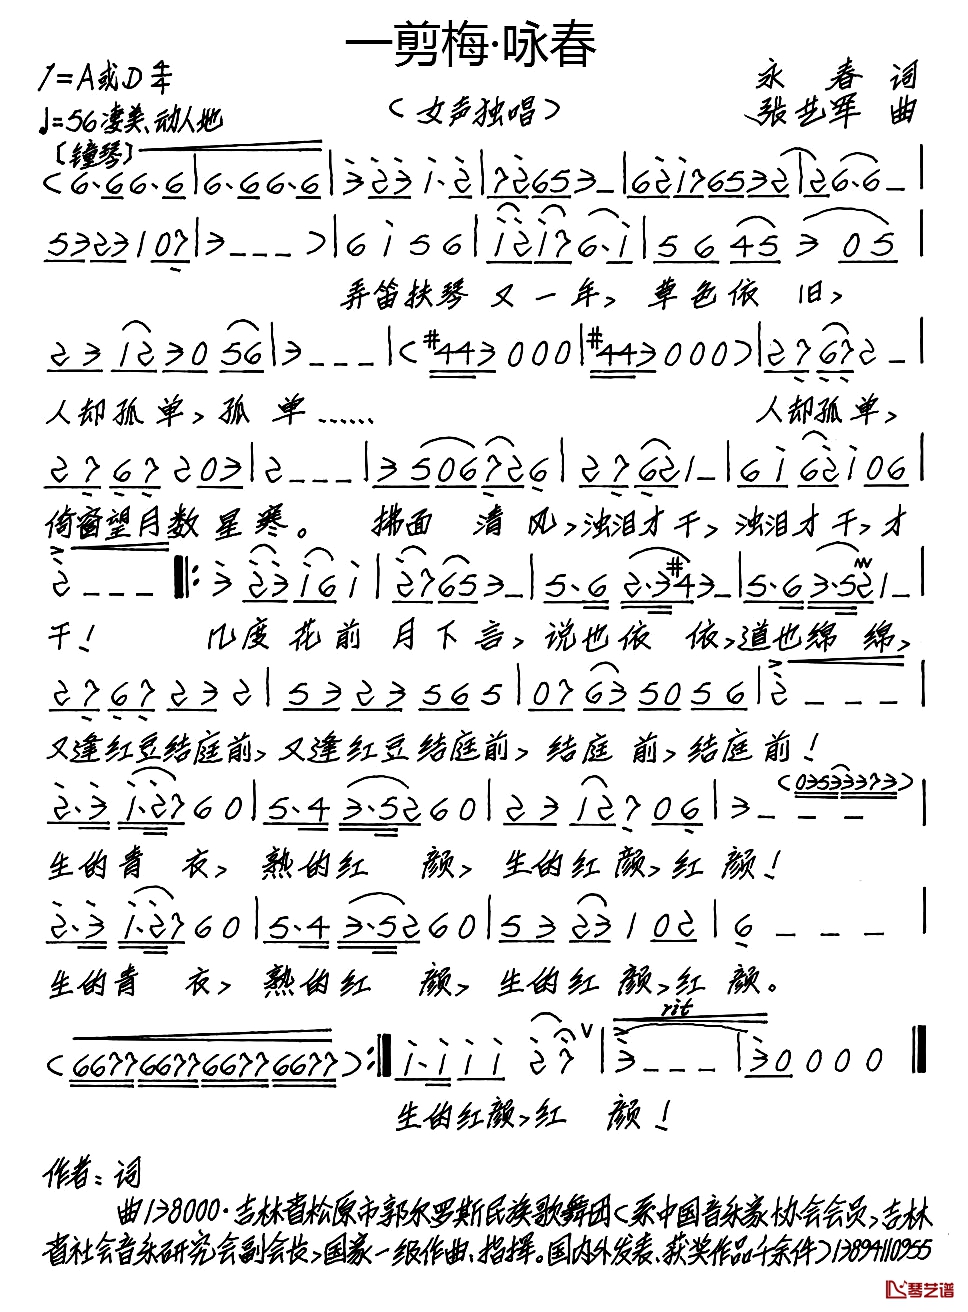 一剪梅·咏春
1=A或D 4/4
永春 词
♩=56 凄美、动人地
(女声独唱)
张艺军 曲
〔钟琴〕
弄笛扶琴 又一年, 草色依 旧,
人却孤单, 孤 单…… 人却孤单,
倚窗望月数星寒。 拂面 清 风, 浊泪才干, 浊泪才干, 才
干! 几度花前 月下言, 说也依 依, 道也绵 绵,
又逢红豆结庭前, 又逢红豆结庭前, 结庭 前, 结庭前!
生的青 衣, 熟的红 颜, 生的红颜, 红 颜!
生的青 衣, 熟的红 颜, 生的红 颜, 红 颜。
rit
生的红颜, 红 颜!
作者: 词
曲 138000·吉林省松原市郭尔罗斯民族歌舞团(系中国音乐家协会会员, 吉林
省社会音乐研究会副会长, 国家一级作曲、指挥。国内外发表、获奖作品千余件) 13894110955
琴艺谱